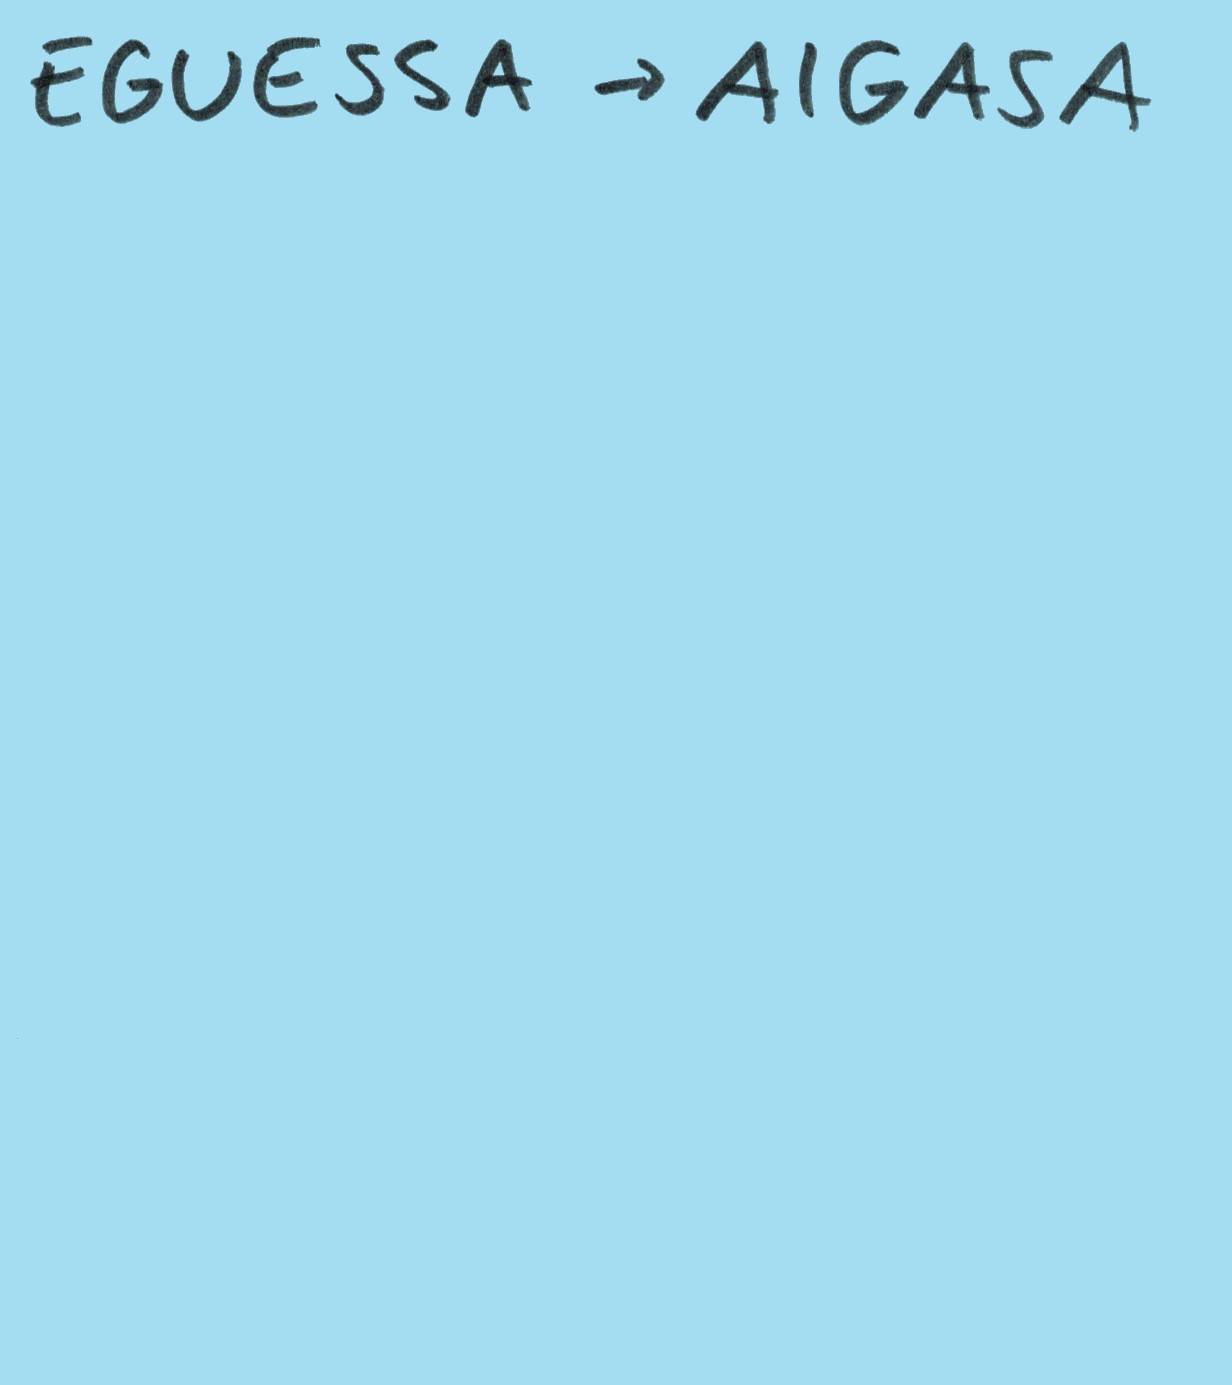 EGUESSA → AIGASA